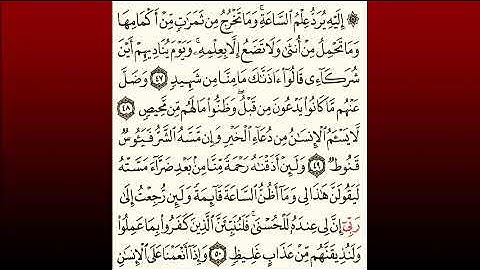 ۞ إِلَيْهِ يُرَدُّ عِلْمُ ٱلسَّاعَةِ ۚ وَمَا تَخْرُجُ مِن ثَمَرَٰتٍ مِّنْ أَكْمَامِهَا
وَمَا تَحْمِلُ مِنْ أُنثَىٰ وَلَا تَضَعُ إِلَّا بِعِلْمِهِۦ ۚ وَيَوْمَ يُنَادِيهِمْ أَيْنَ
شُرَكَآءِى قَالُوٓا۟ ءَاذَنَّـٰكَ مَا مِنَّا مِن شَهِيدٍ ٤٧ وَضَلَّ
عَنْهُم مَّا كَانُوا۟ يَدْعُونَ مِن قَبْلُ ۖ وَظَنُّوا۟ مَا لَهُم مِّن مَّحِيصٍ ٤٨
لَّا يَسْـَٔمُ ٱلْإِنسَـٰنُ مِن دُعَآءِ ٱلْخَيْرِ وَإِن مَّسَّهُ ٱلشَّرُّ فَيَـُٔوسٌ
قَنُوطٌ ٤٩ وَلَئِنْ أَذَقْنَـٰهُ رَحْمَةً مِّنَّا مِنۢ بَعْدِ ضَرَّآءَ مَسَّتْهُ
لَيَقُولَنَّ هَـٰذَا لِى وَمَآ أَظُنُّ ٱلسَّاعَةَ قَآئِمَةً وَلَئِن رُّجِعْتُ إِلَىٰ
رَبِّىٓ إِنَّ لِى عِندَهُۥ لَلْحُسْنَىٰ ۚ فَلَنُنَبِّئَنَّ ٱلَّذِينَ كَفَرُوا۟ بِمَا عَمِلُوا۟
وَلَنُذِيقَنَّهُم مِّنْ عَذَابٍ غَلِيظٍ ٥٠ وَإِذَآ أَنْعَمْنَا عَلَى ٱلْإِنسَـٰنِ